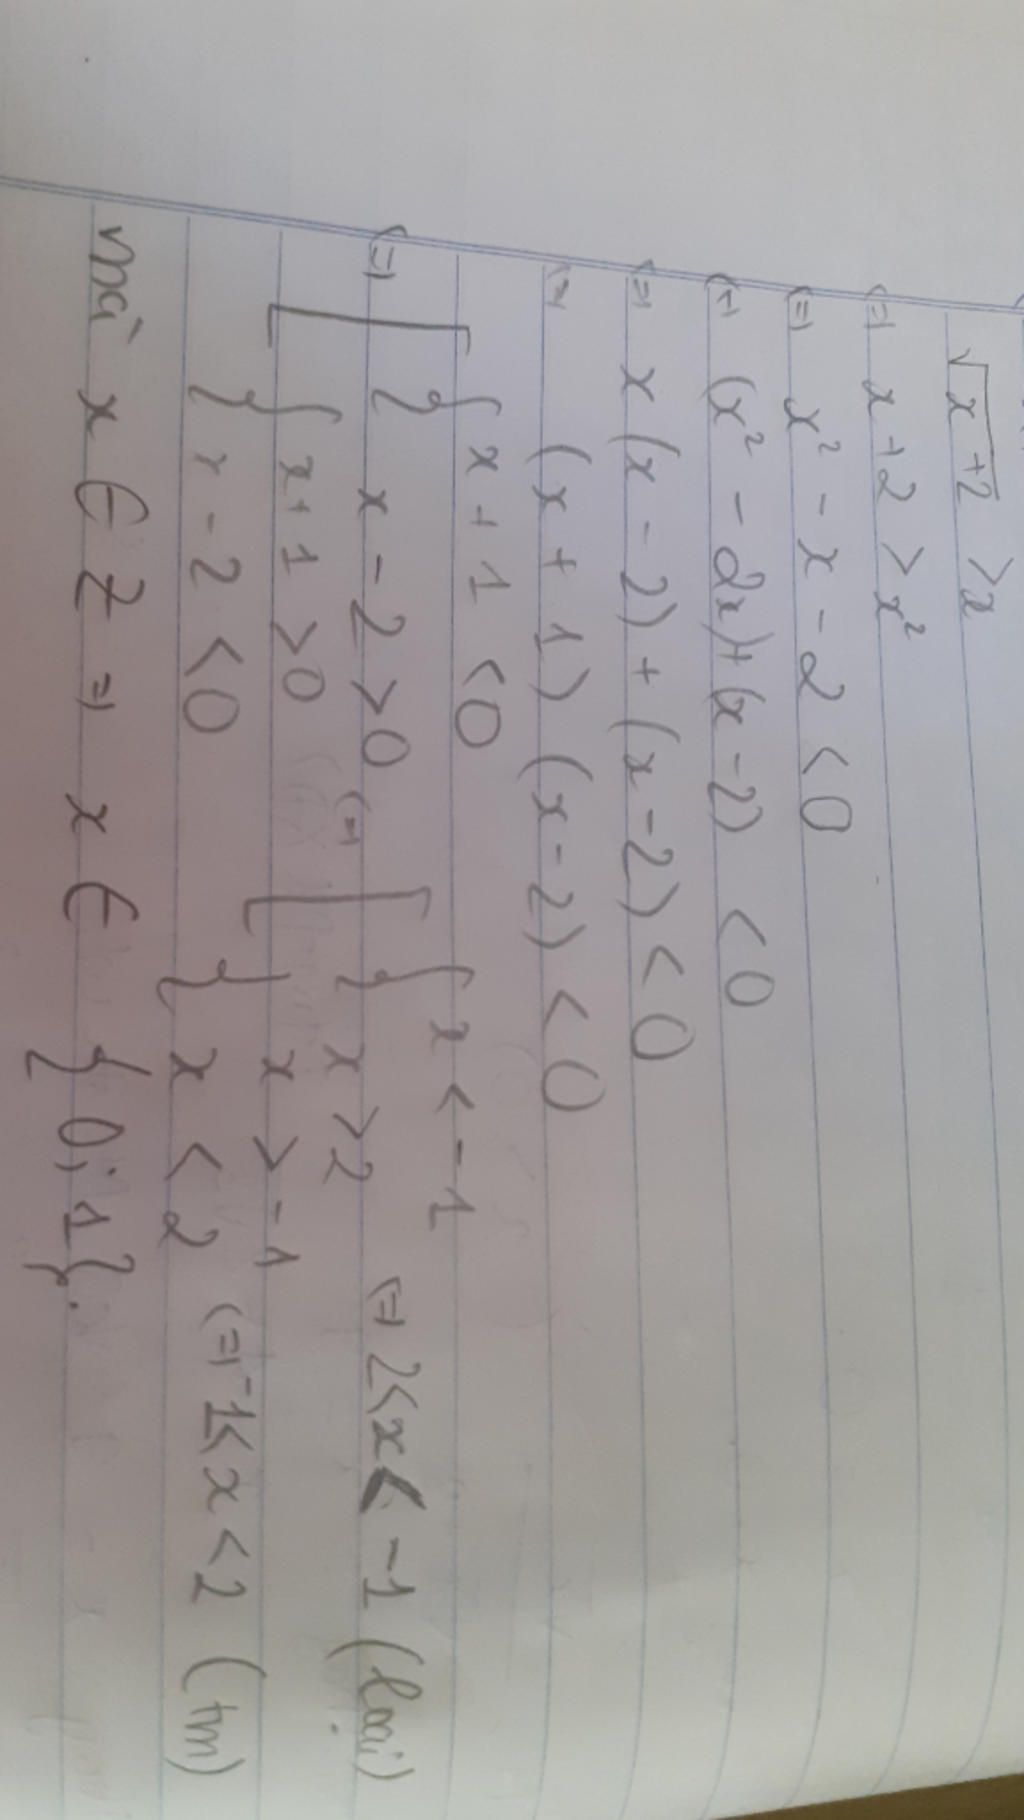 √x+2 > x
(=) x + 2 > x²
(=) x² - x - 2 < 0
(=) (x² - 2x) + (x - 2) < 0
(=) x(x - 2) + (x - 2) < 0
(=) (x + 1)(x - 2) < 0
(=) [ { x + 1 < 0
x - 2 > 0
{ x + 1 > 0
x - 2 < 0
(=) [ { x < -1
x > 2 (=) 2 < x < -1 (loại)
{ x > -1
x < 2 (=) -1 < x < 2 (tm)
mà x ∈ Z =) x ∈ {0; 1}.